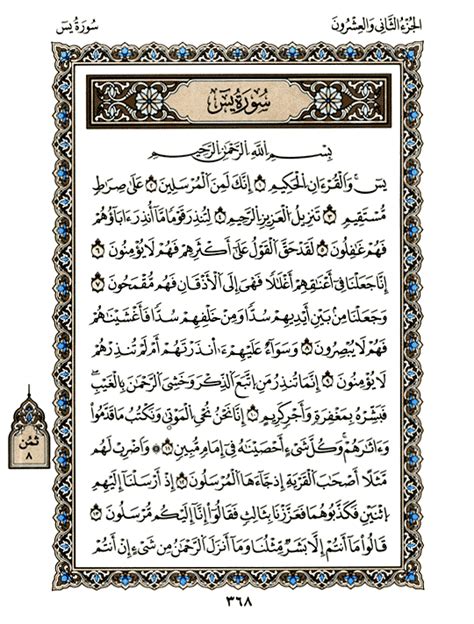 الجزء الثانى والعشرون
سورة يس
سورة يس
بسم الله الرحمن الرحيم
يس والقرءان الحكيم ١ إنك لمن المرسلين ٢ على صراط
مستقيم ٣ تنزيل العزيز الرحيم ٤ لتنذر قوما ما أنذر ءاباؤهم
فهم غافلون ٥ لقد حق القول على أكثرهم فهم لا يؤمنون ٦
إنا جعلنا فى أعناقهم أغلالا فهى إلى الأذقان فهم مقمحون ٧
وجعلنا من بين أيديهم سدا ومن خلفهم سدا فأغشيناهم
فهم لا يبصرون ٨ وسواء عليهم ءأنذرتهم أم لم تنذرهم
لا يؤمنون ٩ إنما تنذر من اتبع الذكر وخشى الرحمن بالغيب
فبشره بمغفرة وأجر كريم ١٠ إنا نحن نحى الموتى ونكتب ما قدموا
وءاثارهم وكل شىء أحصيناه فى إمام مبين ١١ ۞ واضرب لهم
مثلا أصحاب القرية إذ جاءها المرسلون ١٢ إذ أرسلنا إليهم
اثنين فكذبوهما فعززنا بثالث فقالوا إنا إليكم مرسلون ١٣
قالوا ما أنتم إلا بشر مثلنا وما أنزل الرحمن من شىء إن أنتم
ثمن
٨
٣٦٨